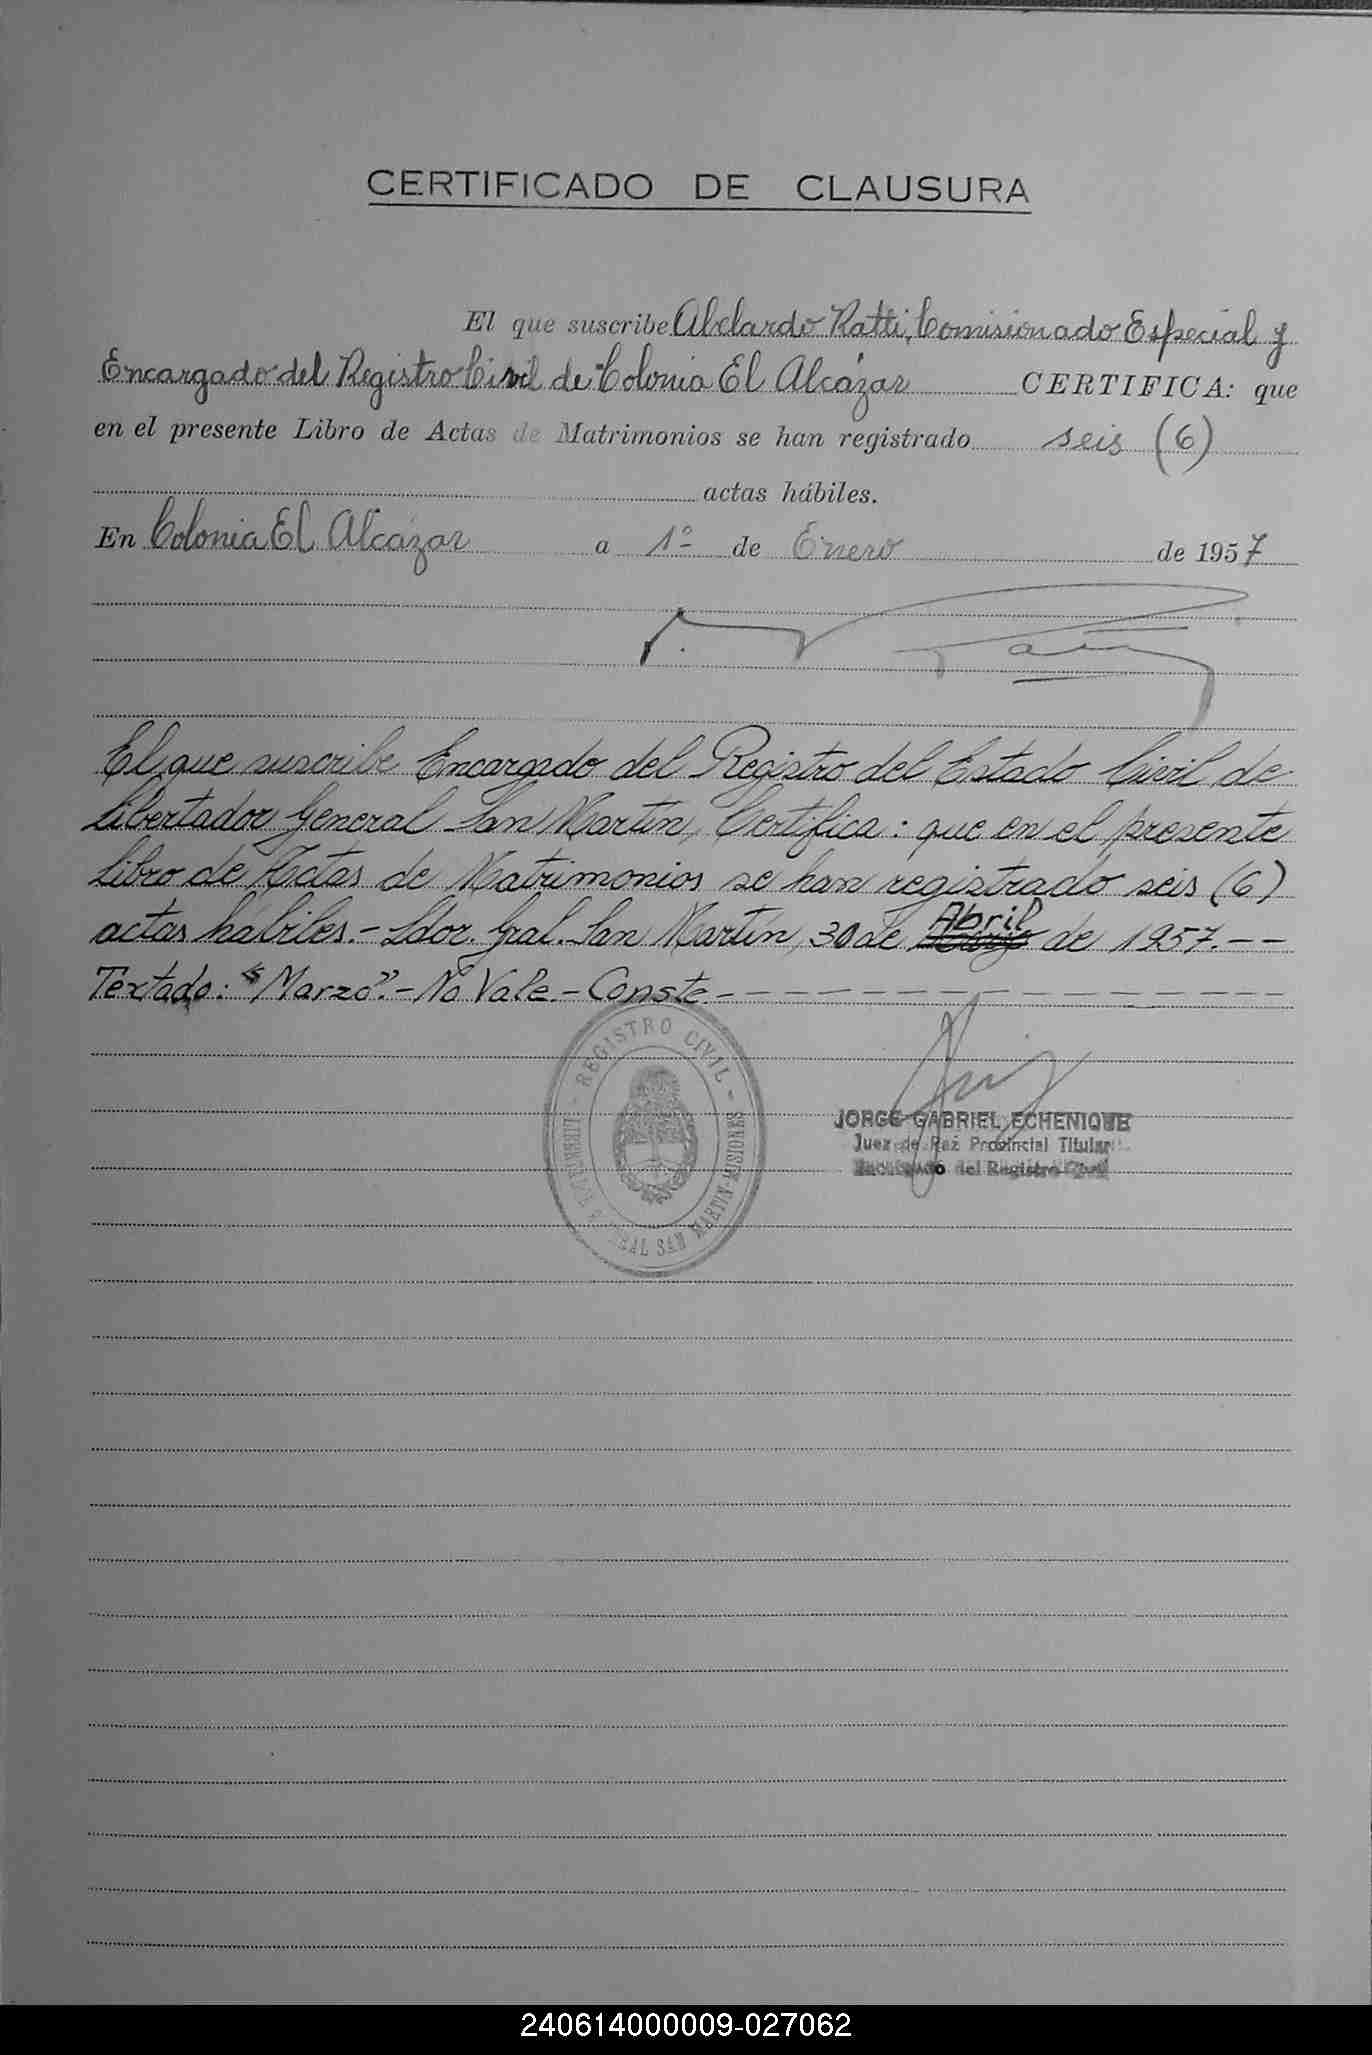 CERTIFICADO DE CLAUSURA
El que suscribe Abelardo Ratti, Comisionado Especial y
Encargado del Registro Civil de Colonia El Alcázar CERTIFICA: que
en el presente Libro de Actas de Matrimonios se han registrado seis (6)
actas hábiles.
En Colonia El Alcázar a 1º de Enero de 1957
El que suscribe Encargado del Registro del Estado Civil de
Libertador General San Martín, Certifica: que en el presente
Libro de Actas de Matrimonios se han registrado seis (6)
actas hábiles.- Ldor. Gral. San Martín, 30 de Abril de 1957.--
Textado: "Marzo".- No Vale.- Conste.-
- REGISTRO CIVIL -
LIBERTADOR GENERAL SAN MARTIN-MISIONES
JORGE GABRIEL ECHENIQUE
Juez de Paz Provincial Titular
Encargado del Registro Civil
240614000009-027062